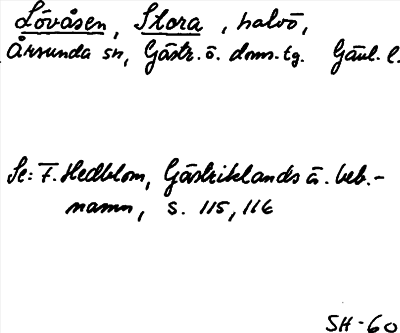 Lövåsen, Stora, halvö,
Årsunda sn, Gästr. ö. doms.tg. Gävl. l.
Se: F. Hedblom, Gästriklands ä. beb.-
namn, s. 115, 116
SH-60